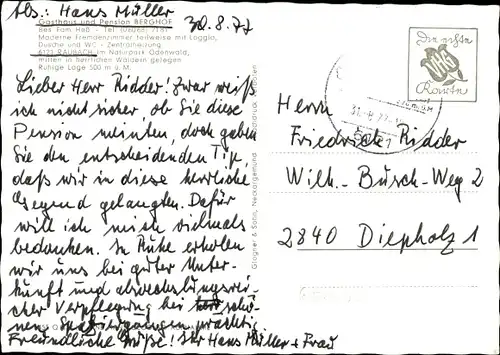 Abs.: Hans Müller 30.8.77
Gasthaus und Pension BERGHOF
Bes. Fam.
Moderne Fremdenzimmer teilweise mit Loggia,
Dusche und WC - Zentralheizung
6121 RAUBACH im Naturpark Odenwald,
mitten in herrlichen Wäldern gelegen
Ruhige Lage 500 m ü. M.
Lieber Herr Ridder! Zwar weiß
ich nicht sicher, ob Sie diese
Pension meinten, doch gaben
Sie den entscheidenden Tip,
daß wir in diese herrliche
Gegend gelangten. Dafür
will ich mich vielmals
bedanken. In Ruhe erholen
wir uns bei guter Unter-
kunft und abwechslungsrei-
cher Verpflegung bei schö-
nen Spaziergängen prächtig.
Freundliche Grüße! Ihr Hans Müller + Frau
Glogner & Sohn, Neckargemünd
Die ersten
Konsten
Herrn
Friedrich Ridder
Wilh.-Busch-Weg 2
2840 Diepholz 1